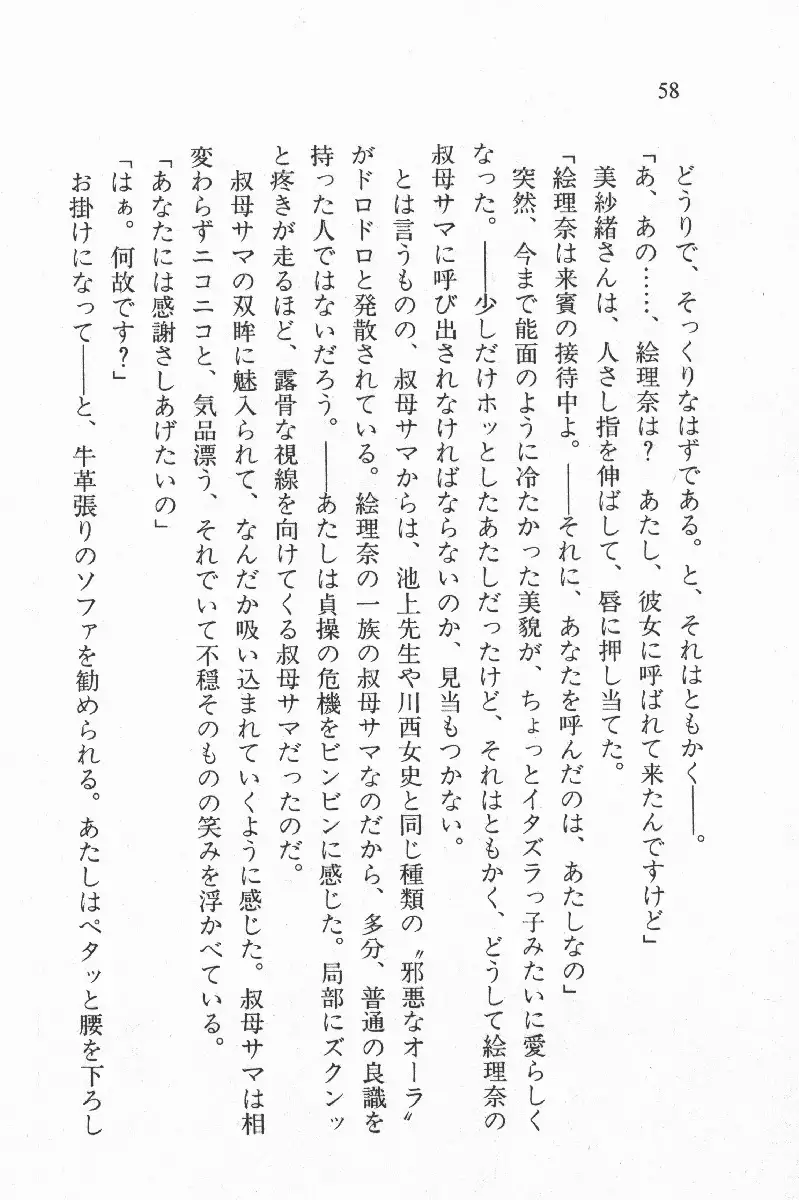 58
どうりで、そっくりなはずである。と、それはともかく――。
「あ、あの……、絵理奈は？　あたし、彼女に呼ばれて来たんですけど」
美紗緒さんは、人さし指を伸ばして、唇に押し当てた。
「絵理奈は来賓の接待中よ。――それに、あなたを呼んだのは、あたしなの」
突然、今まで能面のように冷たかった美貌が、ちょっとイタズラっ子みたいに愛らしく
なった。――少しだけホッとしたあたしだったけど、それはともかく、どうして絵理奈の
叔母サマに呼び出されなければならないのか、見当もつかない。
とは言うものの、叔母サマからは、池上先生や川西女史と同じ種類の〝邪悪なオーラ〟
がドロドロと発散されている。絵理奈の一族の叔母サマなのだから、多分、普通の良識を
持った人ではないだろう。――あたしは貞操の危機をビンビンに感じた。局部にズクンッ
と疼きが走るほど、露骨な視線を向けてくる叔母サマだったのだ。
叔母サマの双眸に魅入られて、なんだか吸い込まれていくように感じた。叔母サマは相
変わらずニコニコと、気品漂う、それでいて不穏そのものの笑みを浮かべている。
「あなたには感謝さしあげたいの」
「はぁ。何故です？」
お掛けになって――と、牛革張りのソファを勧められる。あたしはペタッと腰を下ろし